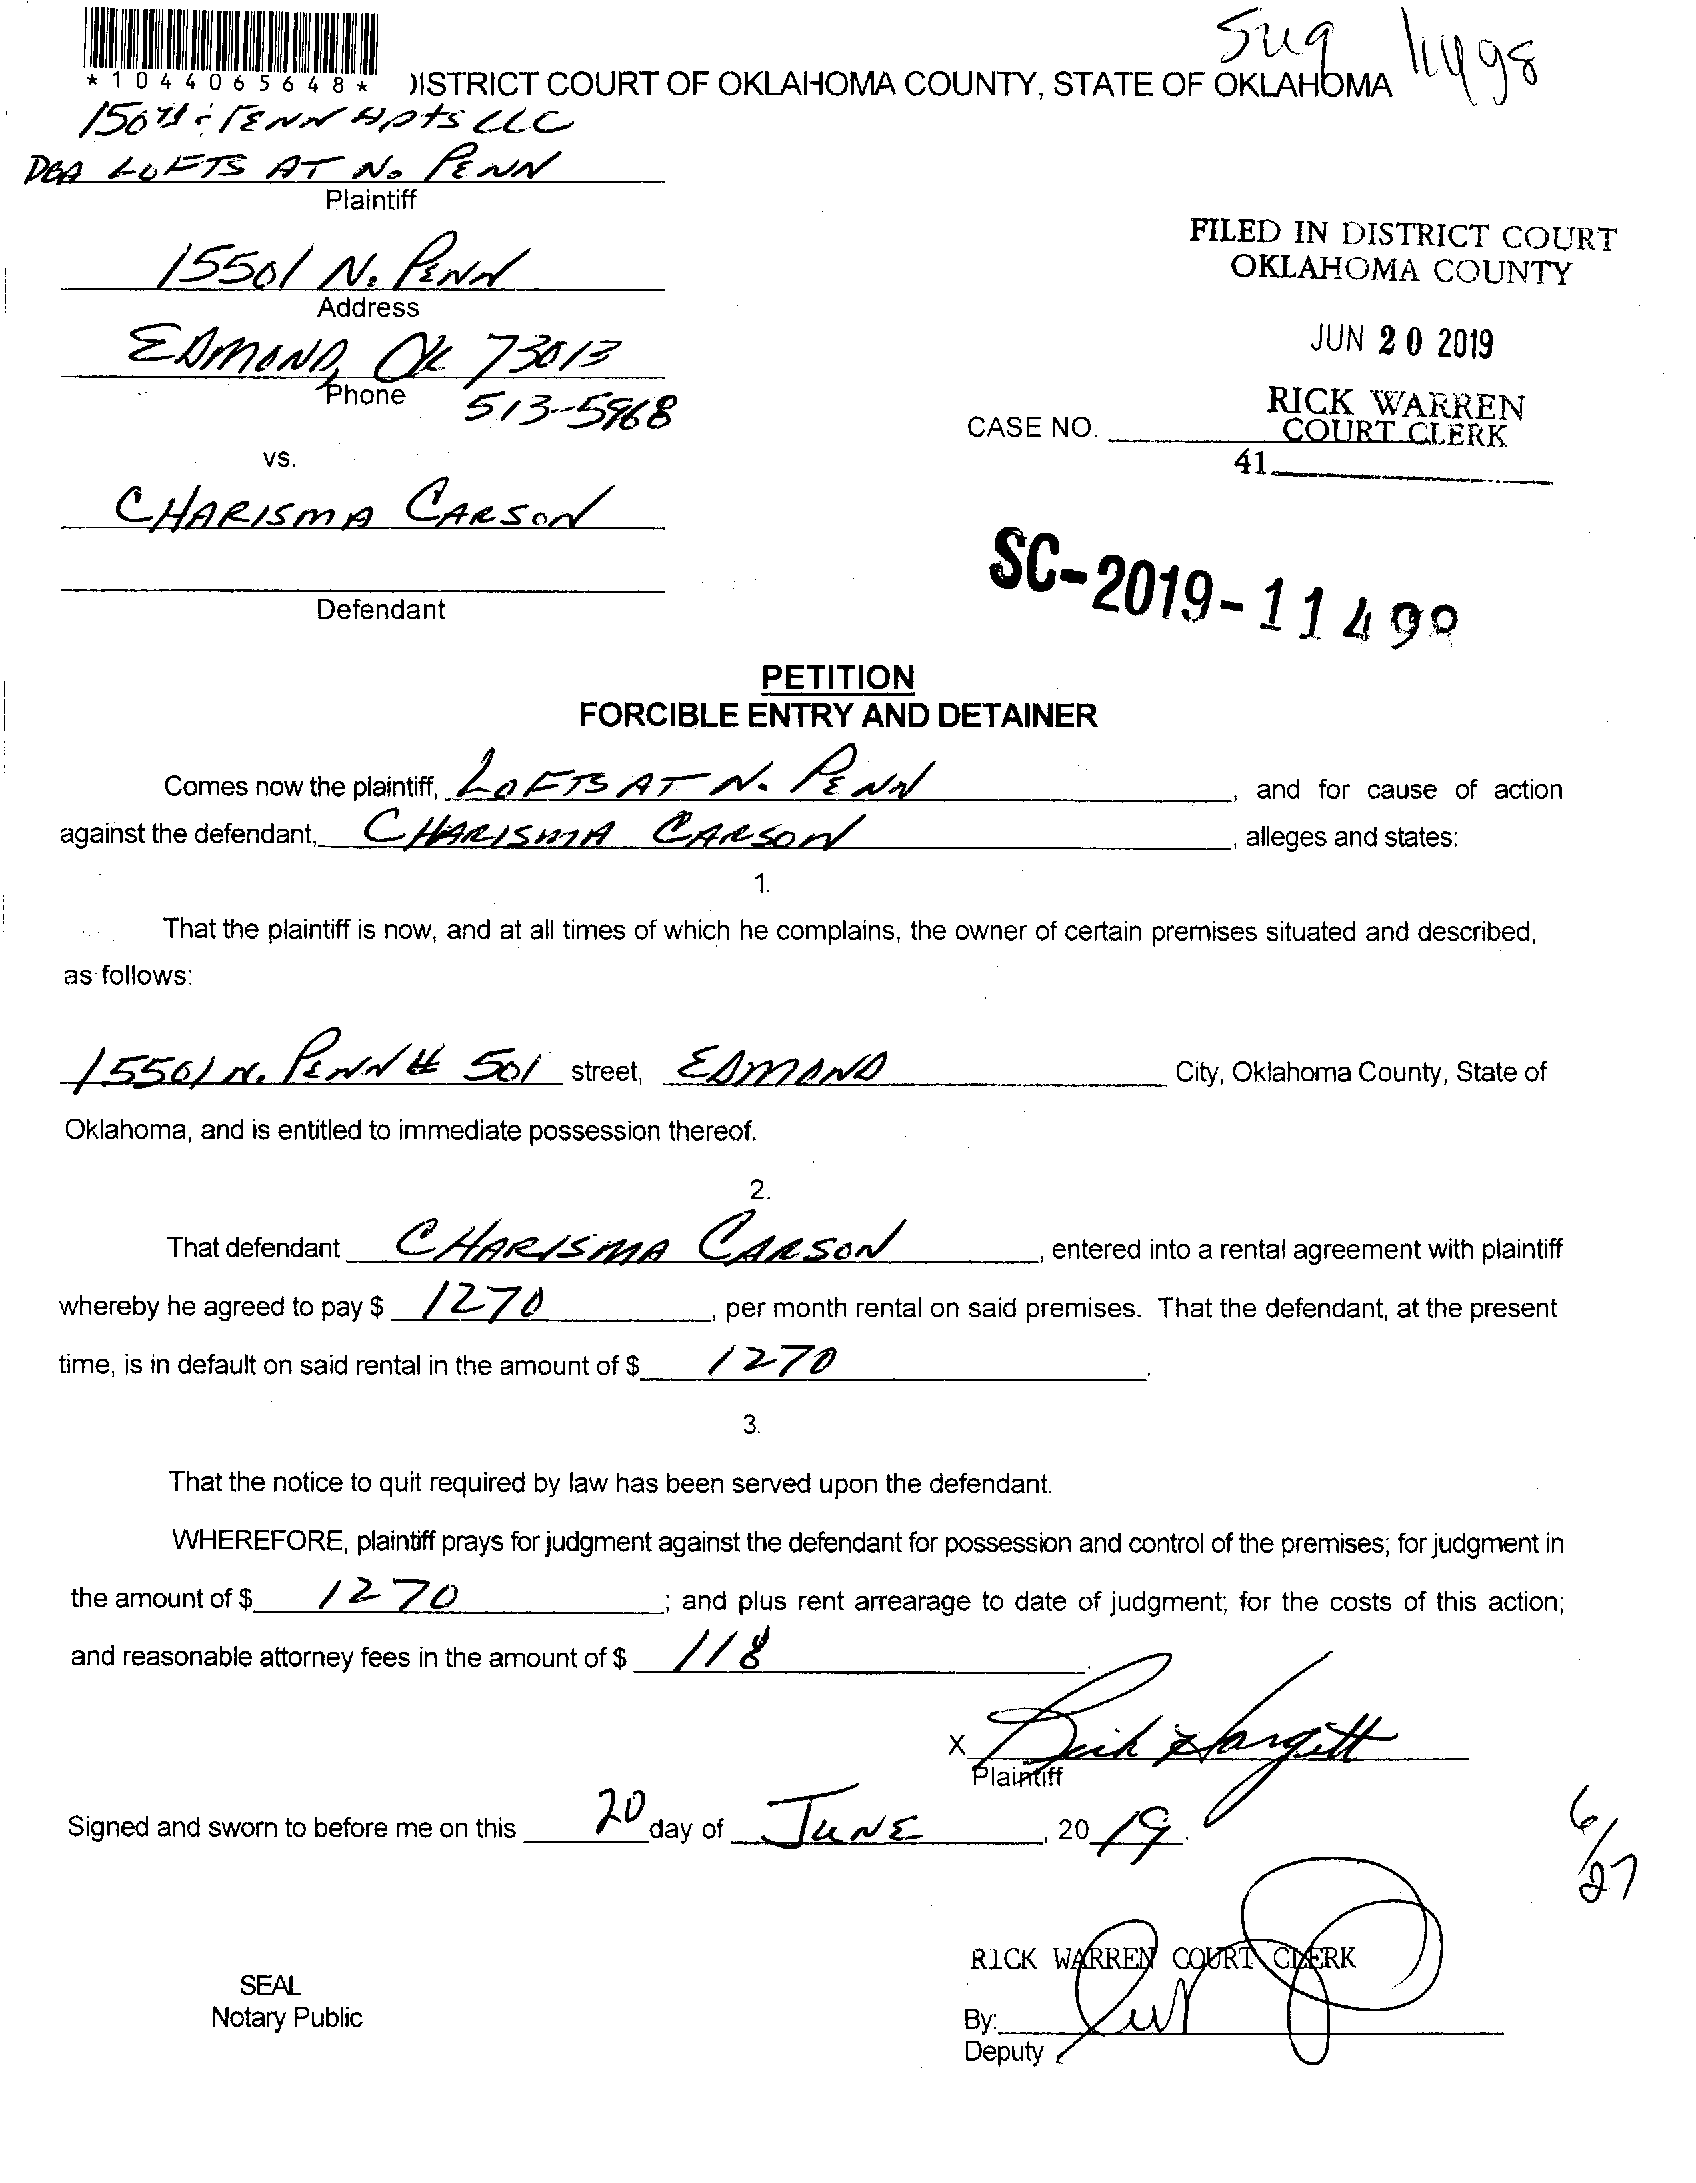 *1044065648*
DISTRICT COURT OF OKLAHOMA COUNTY, STATE OF OKLAHOMA
150th & PENN Apts LLC
DBA LOFTS AT No PENN
Plaintiff
15501 N. PENN
Address
EDMOND, OK 73013
Phone 513-5968
vs.
CHARISMA CARSON
Defendant
FILED IN DISTRICT COURT
OKLAHOMA COUNTY
JUN 20 2019
RICK WARREN
COURT CLERK
CASE NO.
41
SC-2019-11498
PETITION
FORCIBLE ENTRY AND DETAINER
Comes now the plaintiff, LOFTS AT N. PENN, and for cause of action
against the defendant, CHARISMA CARSON, alleges and states:
1.
That the plaintiff is now, and at all times of which he complains, the owner of certain premises situated and described,
as follows:
15501 N. PENN # 501 street, EDMOND City, Oklahoma County, State of
Oklahoma, and is entitled to immediate possession thereof.
2.
That defendant CHARISMA CARSON, entered into a rental agreement with plaintiff
whereby he agreed to pay $ 1270, per month rental on said premises. That the defendant, at the present
time, is in default on said rental in the amount of $ 1270.
3.
That the notice to quit required by law has been served upon the defendant.
WHEREFORE, plaintiff prays for judgment against the defendant for possession and control of the premises; for judgment in
the amount of $ 1270; and plus rent arrearage to date of judgment; for the costs of this action;
and reasonable attorney fees in the amount of $ 118.
X Rick Hargett
Plaintiff
Signed and sworn to before me on this 20 day of JUNE, 20 19.
6/27
RICK WARREN COURT CLERK
SEAL
Notary Public
By:
Deputy